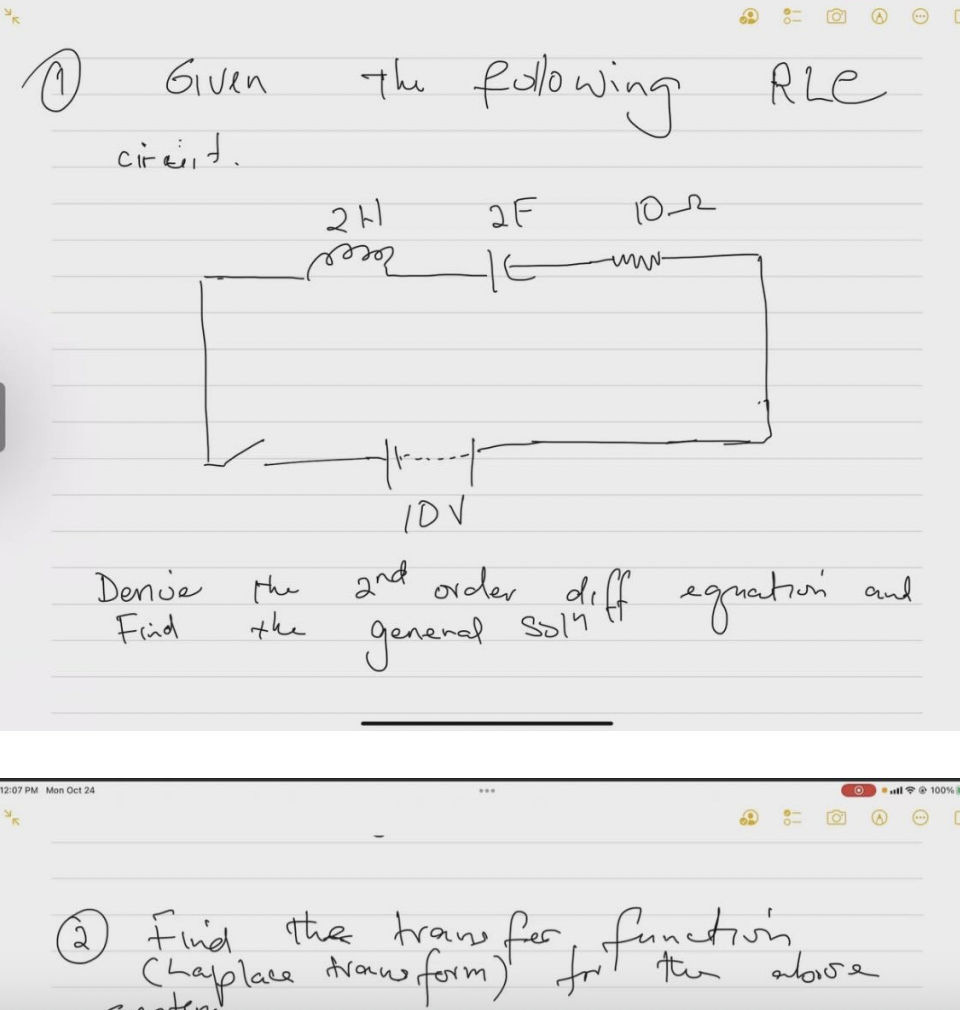 ① Given the following RLC
circuit.
2H 2F 10Ω
10V
Derive the 2nd order diff equation and
Find the general soln
12:07 PM Mon Oct 24
100%
② Find the transfer function
(Laplace transform) for the above